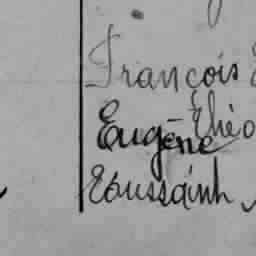 François
Théo
Eugène
Toussaint